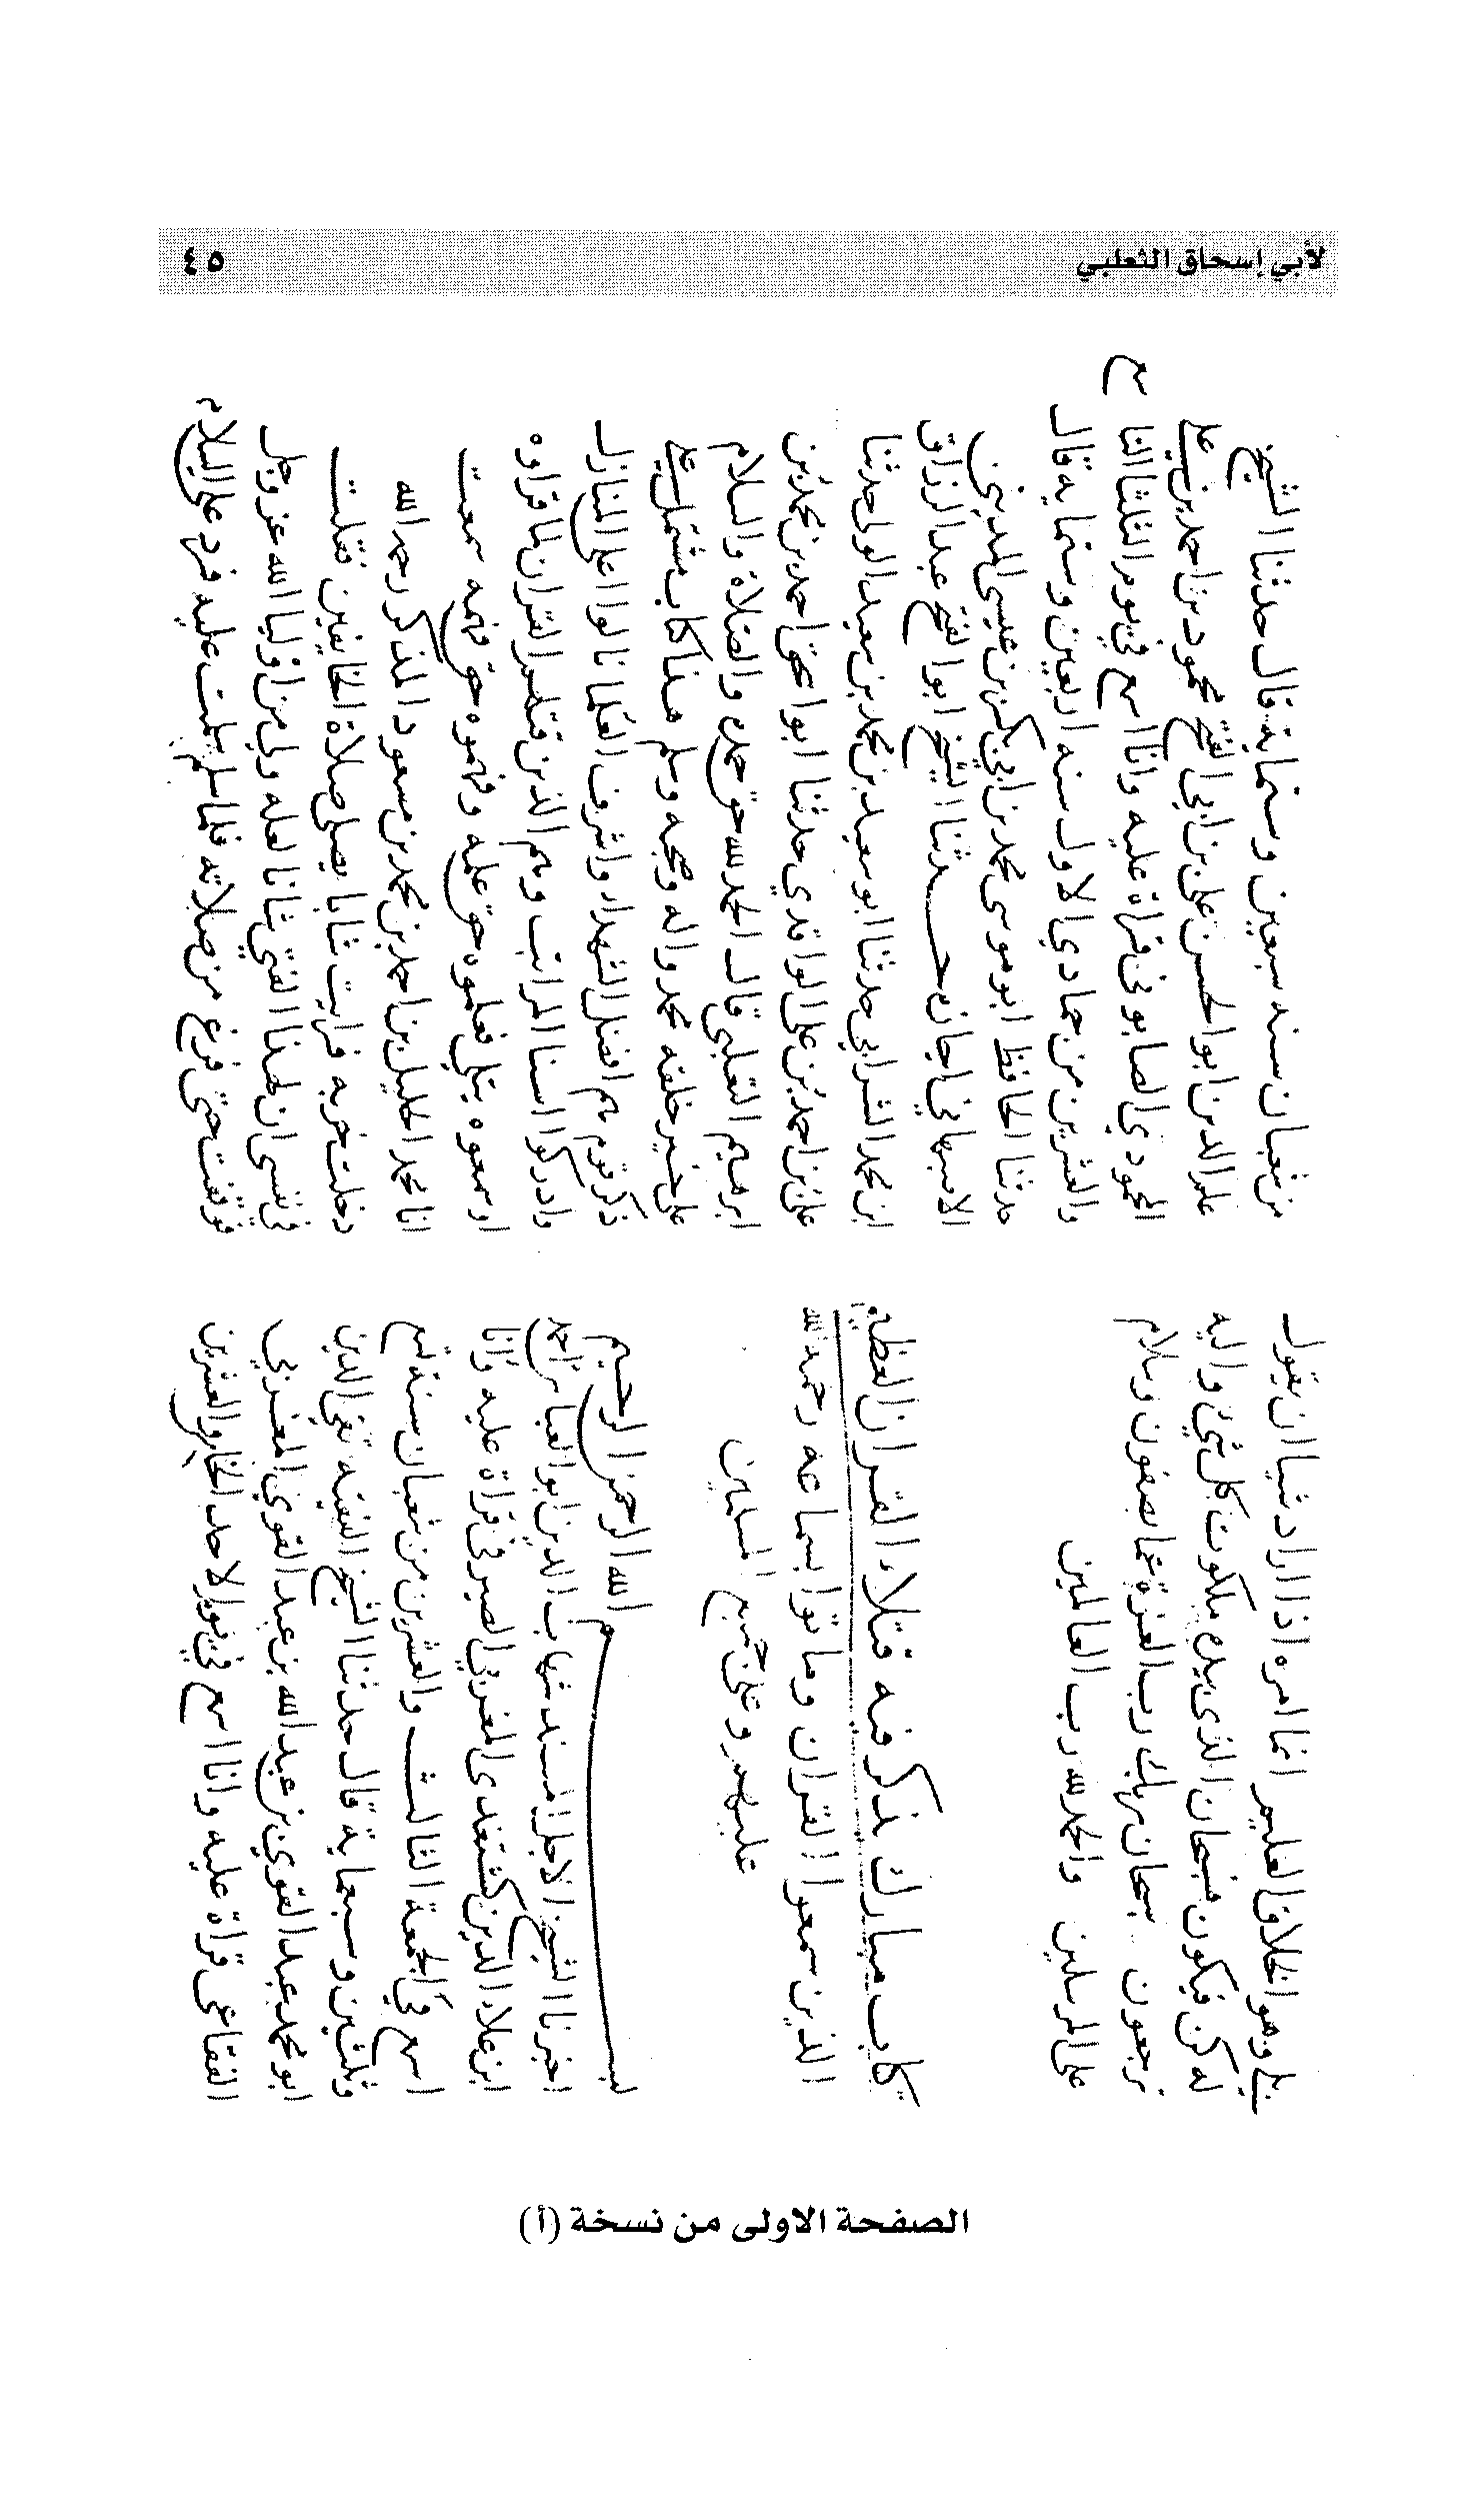 لأبي إسحاق الثعلبي
٤٥
بلى وهو الخلاق العليم انما امره اذا اراد شيا ان يقول
له كن فيكون فسبحان الذى بيده ملكوت كل شي واليه
ترجعون سبحان ربك رب العزة عما يصفون وسلام
على المرسلين والحمد لله رب العالمين
كتاب مبارك يذكر فيه قتلاء القران العظيم
الذين سمعوا القران وماتوا بسماعه رحمة الله
عليهم وعلى جميع المسلمين
بسم الله الرحمن الرحيم
اخبرنا الشيخ الاجل المسند شهاب الدين ابو العباس احمد
ابن علاء الدين كشتغدى المعزي الصيرفى قراة عليه وانا
اسمع في الجمعة الثالث والعشرين من شعبان سنة تسع
وثلثين وسبعماية قال حدثنا الشيخ الفقيه تقي الدين
ابو محمد عبد القوي بن عبد الله بن عبد القوي
القفاعى قراة عليه وانا اسمع في يوم الاحد والعشرين
من شعبان سنه سبعين وستماية قال حدثنا الشيخ
علم الدين ابو الحسن على بن ابي الفتح محمود بن احمد بن على
المحمودي الصابونى قراة عليه وانا اسمع في يوم الثلثا
والعشرين من جمادي الاول سنه اربعين وستمايه قال
حدثنا الحافظ ابو موسى محمد بن ابي بكر بن عيسى المديني
الاصبهاني اجازه حدثنا الشيخ ابو الفتح عبد الرزاق
ابن محمد الشرابي حدثنا ابو سعيد بن محمد بن سعيد الولى حدثنا
على بن احمد بن على الواقدي حدثنا ابو اسحق احمد بن محمد بن
ابرهيم الثعلبي قال الحمد لله حق حمده والصلاة والسلام
على خير خلقه محمد واله وصحبه وسلم هذا كتاب مشتمل على
ذكر قوم هم افضل الشهداء واشرف العلما نالوا اعلى المنازل
وادركوا اسنا المراتب وهم الذين قتلهم القران لما قراوه
او سمعوه يتلى فعلموه حق علمه وفهموه حق فهمه سمعت
ابا محمد الخليل بن احمد بن محمد بن مسعود المذكر رحمه الله
دخلت خربه فرايت شابا يصلى صلاة الخايفين فقلت
في نفسى ان لهذا الفتي شانا لعله ولي من اوليا الله عز وجل
فوقفت حتى فرغ من صلاته فلما سلم سلمت عليه فرد على السلام
الصفحة الاولى من نسخة (أ)